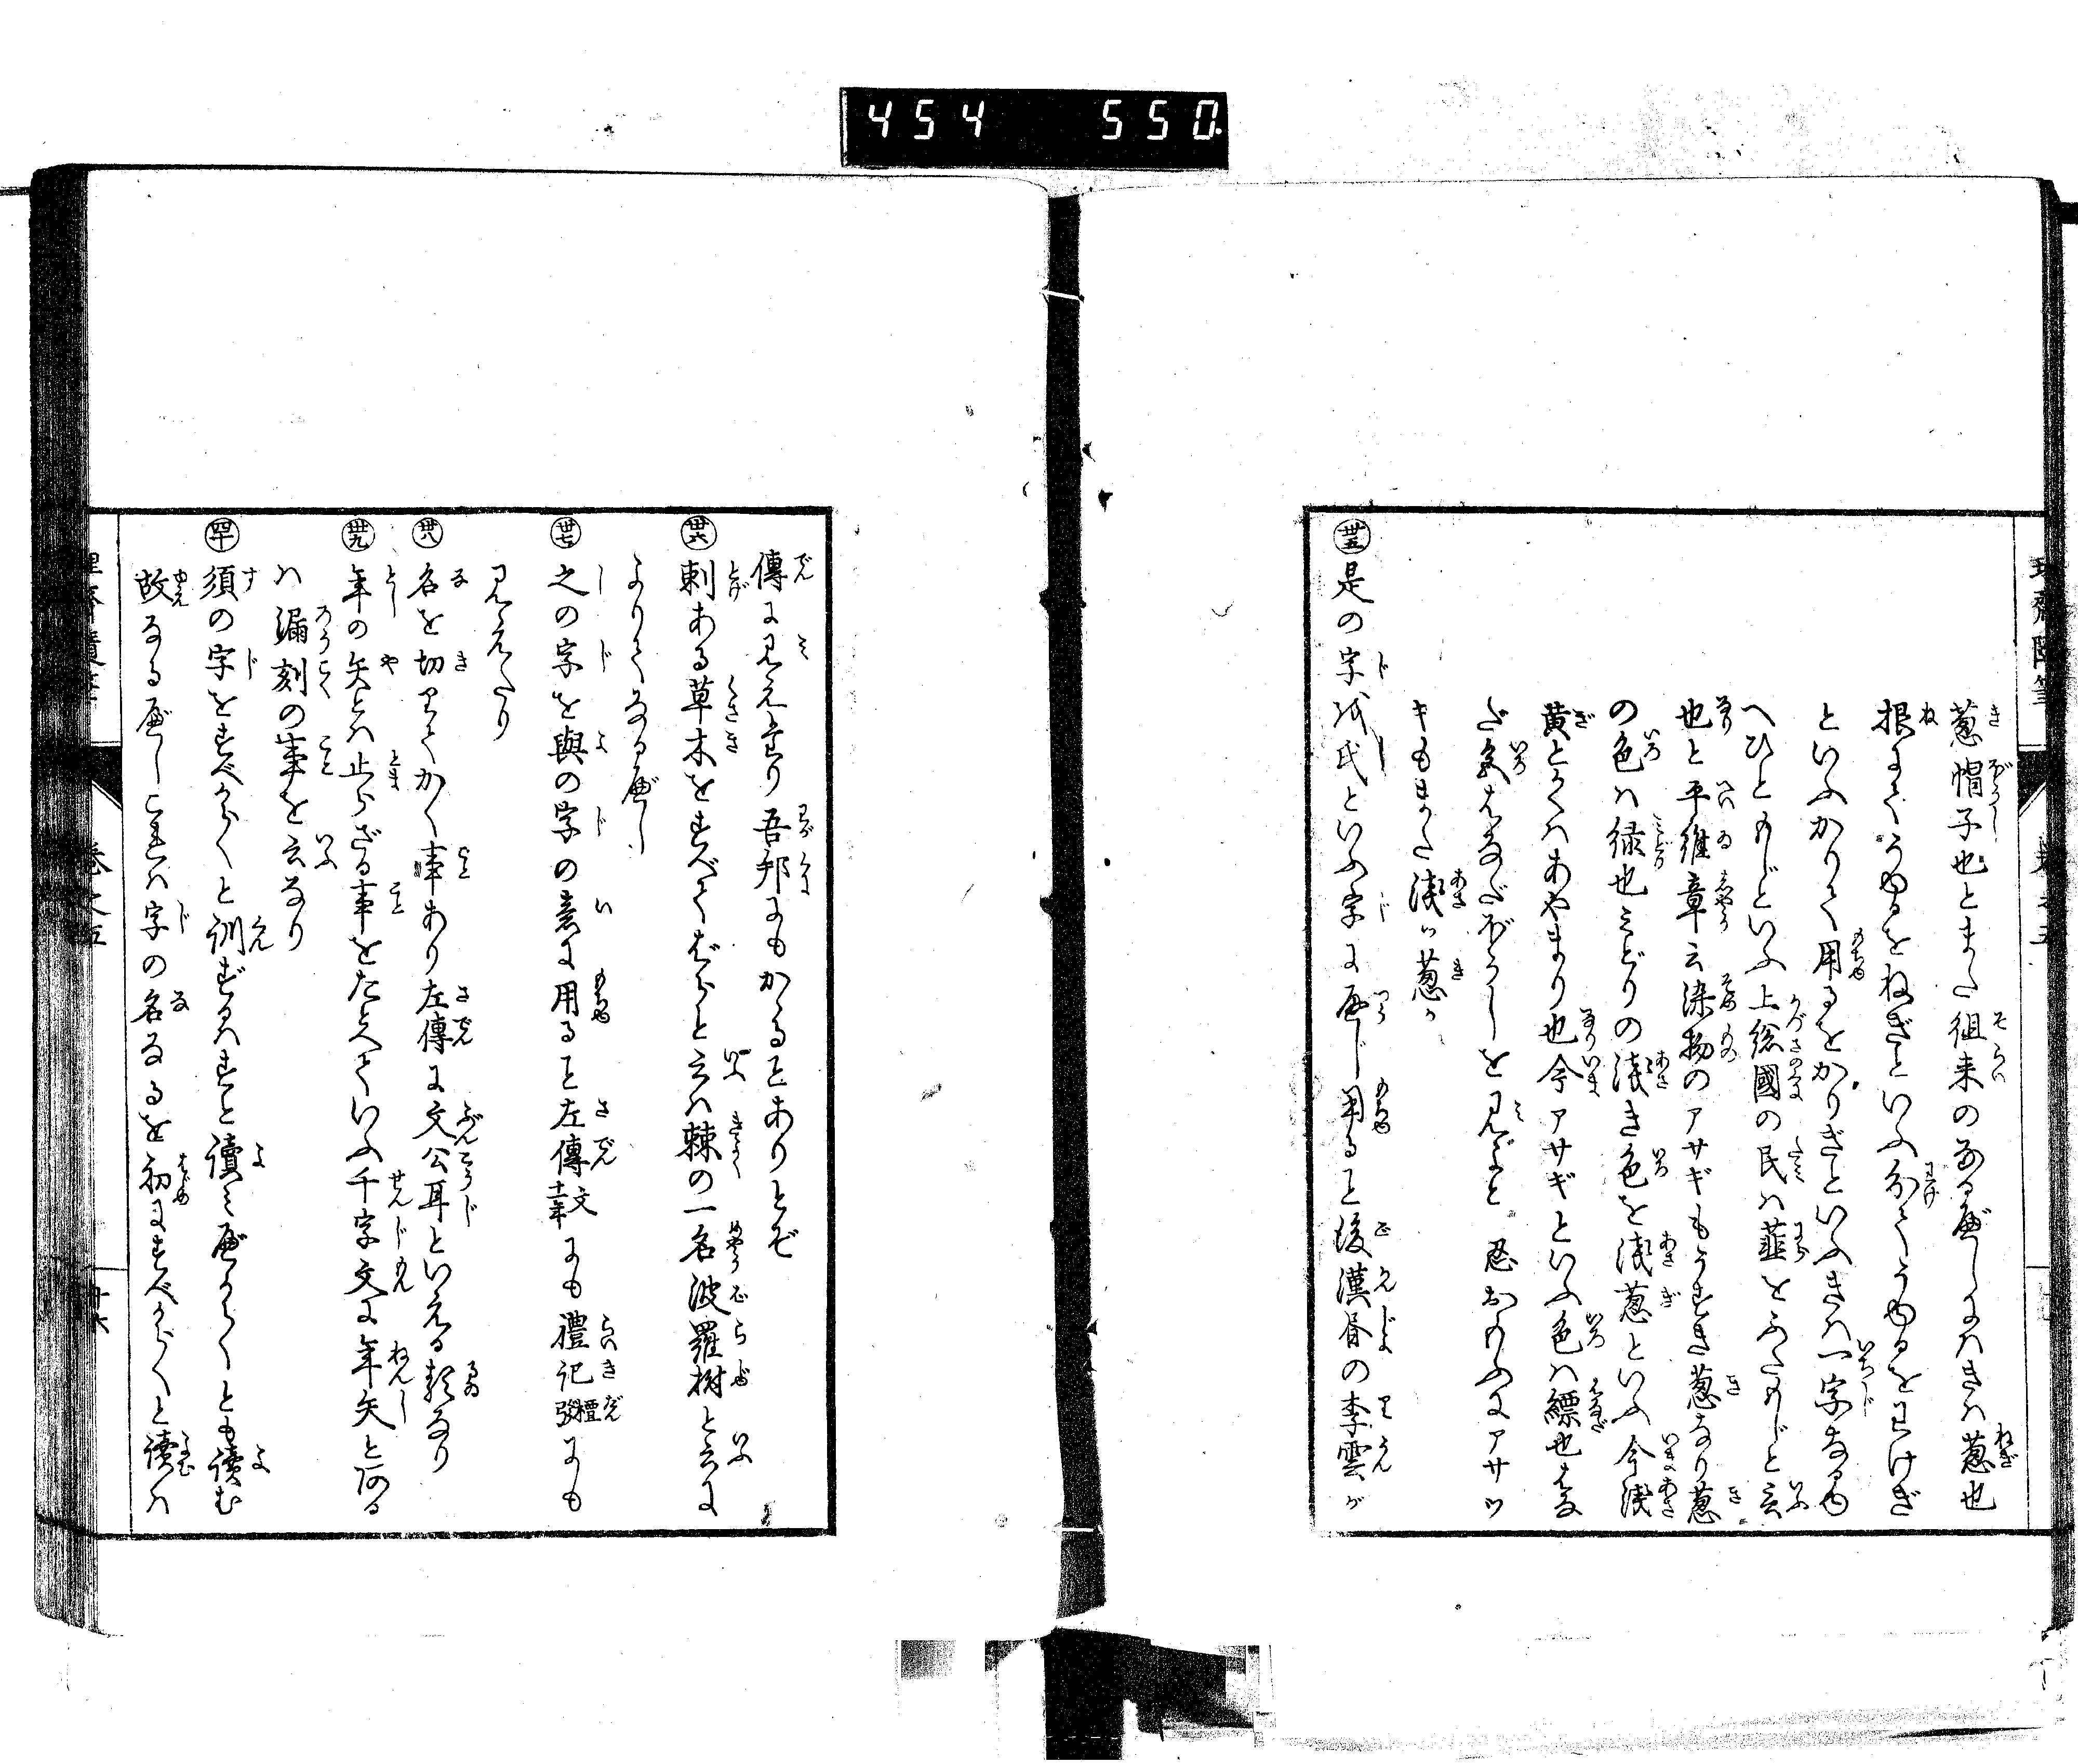 454 550
葱帽子也とまた徂来のなるべしにハきハ葱也
根までうゆるをねぎといふ分てうゆるをわけぎ
といふかりて用るをかりぎといふきハ一字なるゆ
へひともじといふ上総國の民ハ韮をふたもじと云
也と平維章云染物のアサギもうすき葱なり葱
の色ハ緑也みどりの浅き色を浅葱といふ今浅
黄とかくハあやまり也今アサギといふ色ハ縹也はな
だ色はなだぼうしを見よと 忍おもふにアサツ
キもまた浅ツ葱か
卅五 是の字氏といふ字に通じ用ると後漢書の李雲が
傳に見えたり吾邦にもかることありとぞ
卅六 刺ある草木をすべてばらと云ハ棘の一名波羅樹と云に
よりてなるべし
卅七 之の字を與の字の意に用ること左傳文十一年にも禮記檀弓にも
見えたり
卅八 名を切りてかく事あり左傳に文公耳といえる類なり
卅九 年の矢とハ止らざる事をたとへていふ千字文に年矢とある
ハ漏刻の事を云なり
四十 須の字をすべからくと訓ずるハすと讀みべからくとも讀む
故なるべしこれハ字の名なるを初にすべからくと讀ハ